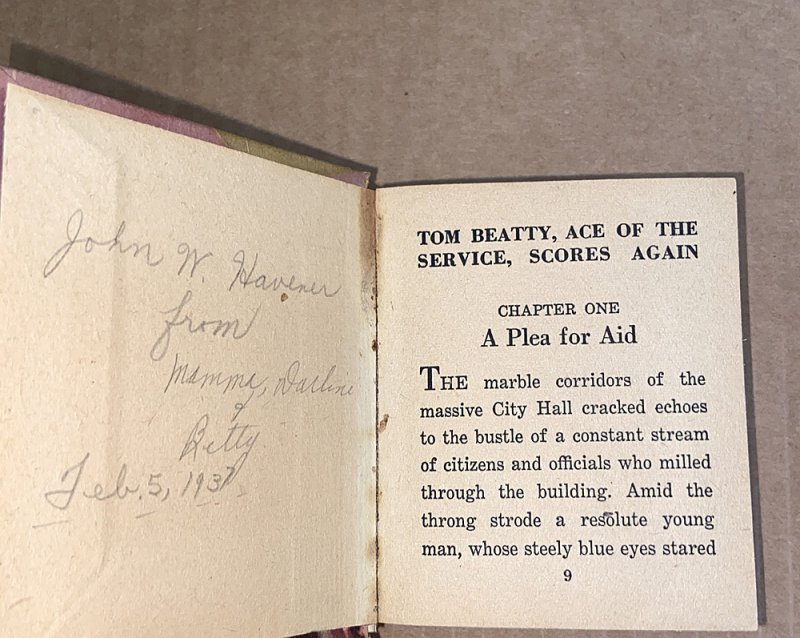 John W. Havener
from
Mamma, Darline
&
Betty
Feb. 5, 1937
TOM BEATTY, ACE OF THE
SERVICE, SCORES AGAIN
CHAPTER ONE
A Plea for Aid
THE marble corridors of the
massive City Hall cracked echoes
to the bustle of a constant stream
of citizens and officials who milled
through the building. Amid the
throng strode a resolute young
man, whose steely blue eyes stared
9